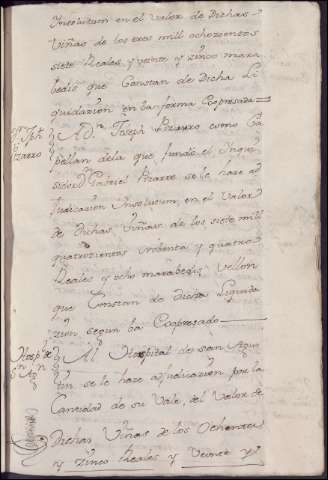 Insolutum en el valor de Dichas
Viñas de los tres mill ochozientos
siete Reales y veinte y zinco mara
bedis que Constan de Dicha Li
quidazion en la forma Expresada
Dn Jph
Pizarro
A Dn Joseph Pizarro como Ca
pellan de la que fundo el Inqui
sidor Gabriel Pizarro se le haze ad
judicazion Insolutum, en el Valor
de Dichas Viñas de los siete mill
quatrozientos ochenta y quatro
Reales y ocho marabedis Vellon
que Constan de Dicha Liquida
zion, segun ba Expresado
Hospl de
Sn Agn
Al Hospital de san Agus
tin se le haze adjudicazion por la
Cantidad de su Vale, del Valor de
Dichas Viñas de los Ochenta
y zinco Reales y Veinte y